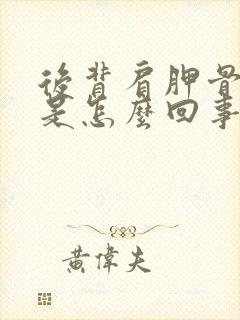 後背肩胛骨
是怎麼回事
黃偉夫